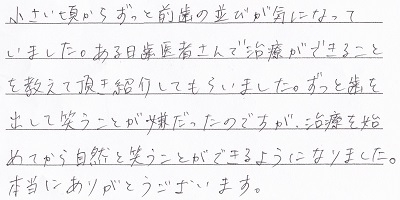 小さい頃からずっと前歯の並びが気になって
いました。ある日歯医者さんで治療ができること
を教えて頂き紹介してもらいました。ずっと歯を
出して笑うことが嫌だったのですが、治療を始
めてから自然と笑うことができるようになりました。
本当にありがとうございます。